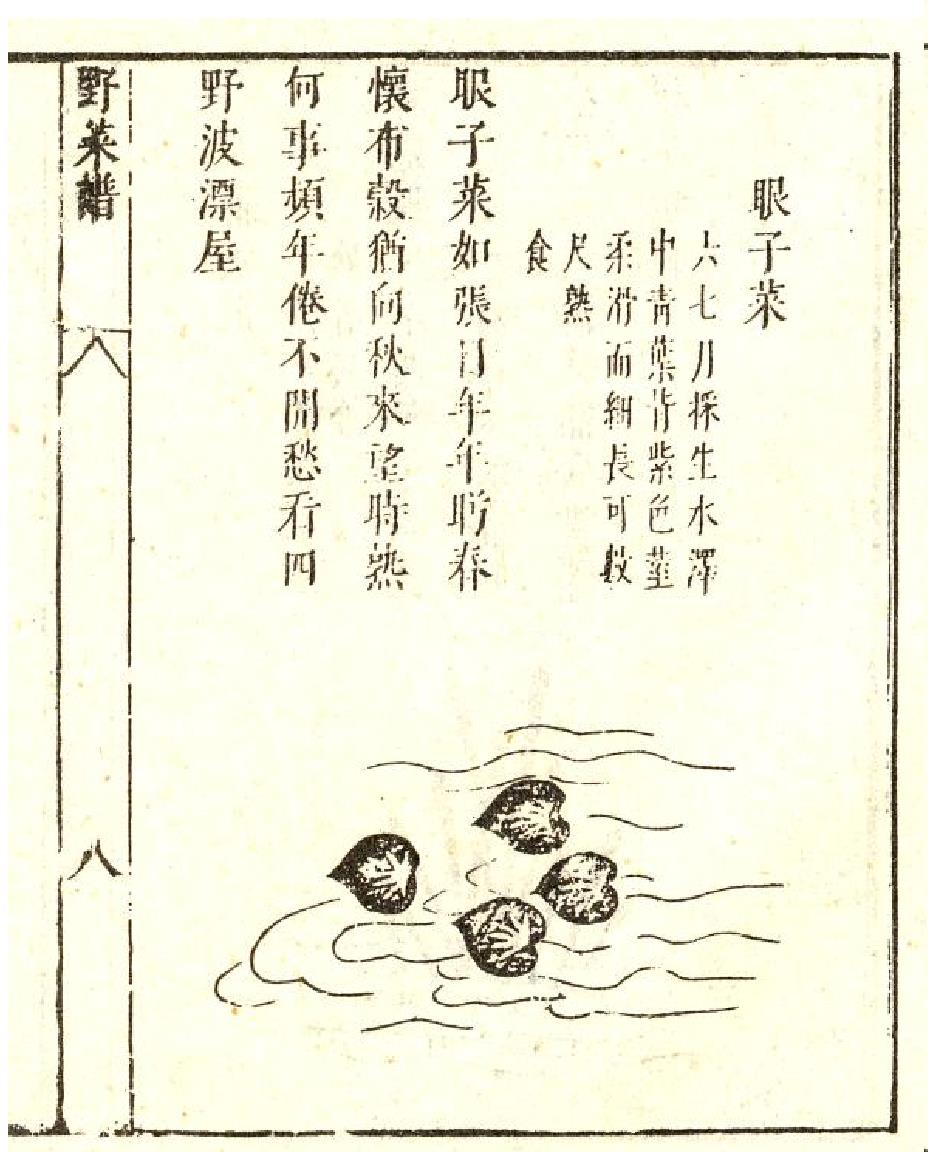 眼子菜
六七月採生水澤
中青葉背紫色莖
柔滑而細長可數
尺熟
食
眼子菜如張目年年盼春
懷布穀猶向秋來望時熟
何事頻年倦不開愁看四
野波漂屋
野菜譜
八